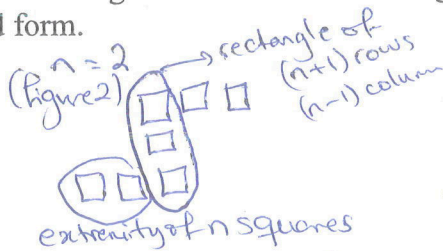 l form.
n = 2
(figure 2)
rectangle of
(n+1) rows
(n-1) colum
extremity of n squares